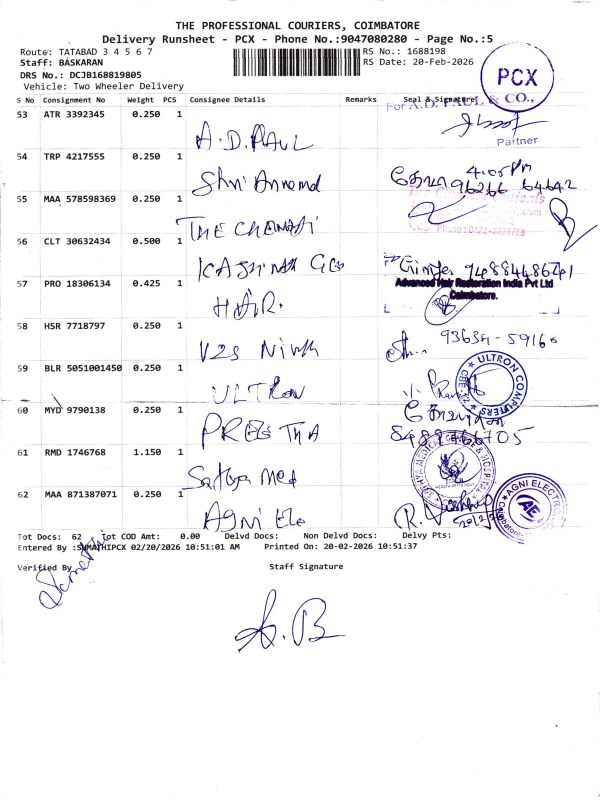 THE PROFESSIONAL COURIERS, COIMBATORE
Delivery Runsheet - PCX - Phone No.:9047080280 - Page No.:5
Route: TATABAD 3 4 5 6 7
RS No.: 1688198
Staff: BASKARAN
RS Date: 20-Feb-2026
DRS No.: DCJB168819805
Vehicle: Two Wheeler Delivery
PCX
S No Consignment No Weight PCS Consignee Details Remarks Seal & Signature
For A.D. PAUL & CO.,
53 ATR 3392345 0.250 1
A.D. PAUL
Partner
54 TRP 4217555 0.250 1
4.05 PM
Shri Anand
96266 64642
55 MAA 578598369 0.250 1
THE CHENNAI
Phone: 0422-
56 CLT 30632434 0.500 1
9488448641
57 PRO 18306134 0.425 1
Advanced Hair Restoration India Pvt Ltd
Coimbatore.
HAIR.
58 HSR 7718797 0.250 1
93634-5916
59 BLR 5051001450 0.250 1
ULTRON
ULTRON COMPUTERS
CBE-12
60 MYD 9790138 0.250 1
PREETHA
61 RMD 1746768 1.150 1
Sathya Med
62 MAA 871387071 0.250 1
Agni Ele
AGNI ELECTRO
AE
Coimbatore
Tot Docs: 62 Tot COD Amt: 0.00 Delvd Docs: Non Delvd Docs: Delvy Pts:
Entered By :SUMATHIPCX 02/20/2026 10:51:01 AM Printed On: 20-02-2026 10:51:37
Verified By Staff Signature
A.B